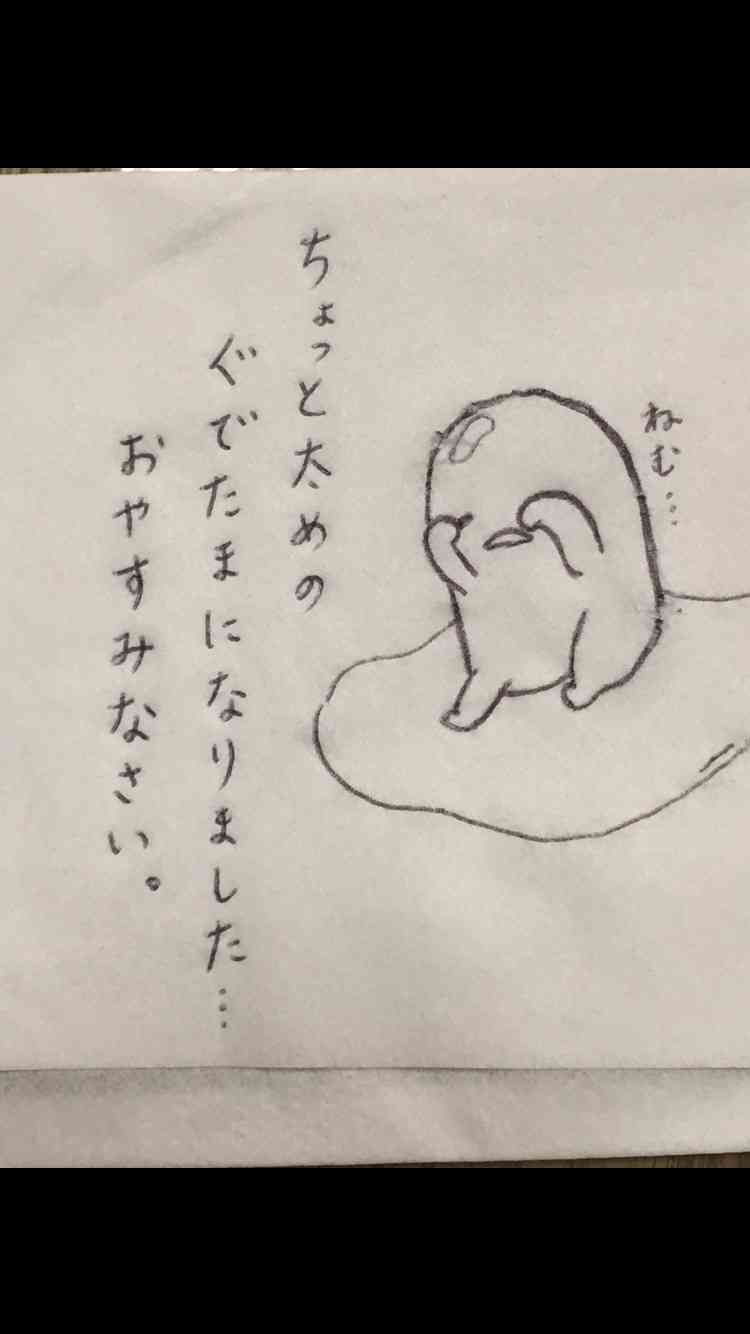 ねむ…
ちょっと太めの
ぐでたまになりました…
おやすみなさい。